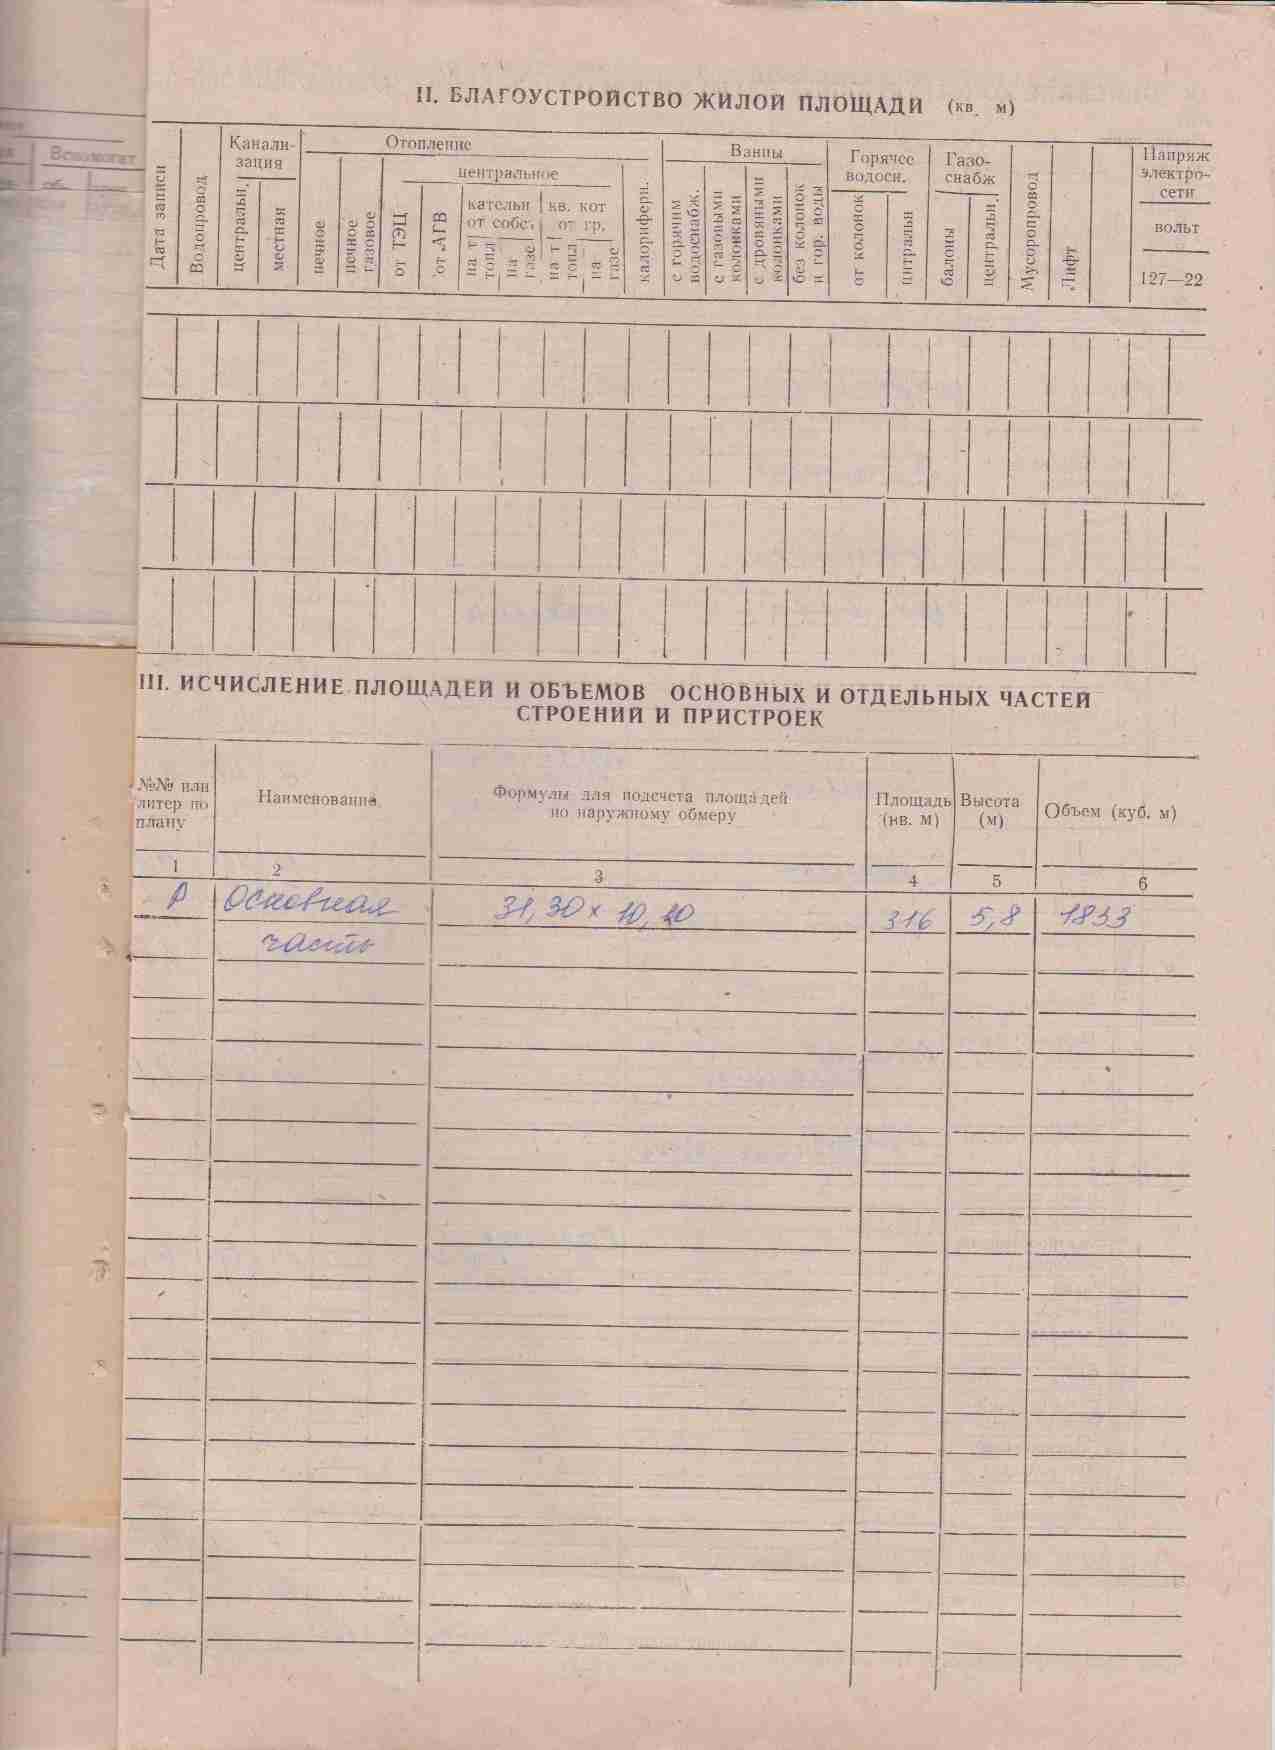 II. БЛАГОУСТРОЙСТВО ЖИЛОЙ ПЛОЩАДИ (кв. м)
Дата записи
Водопровод
Канали-
зация
центральн.
местная
Отопление
печное
печное
газовое
центральное
от ТЭЦ
от АГВ
кательн
от собс.
на т
топл
на
газе
кв. кот
от гр.
на т
топл
на
газе
калориферн.
Ванны
с горячим
водоснабж.
с газовыми
колонками
с дровяными
колонками
без колонок
и гор. воды
Горячее
водосн.
от колонок
цнтральн
Газо-
снабж
балоны
центральн.
Мусоропровод
Лифт
Напряж
электро-
сети
вольт
127—22
III. ИСЧИСЛЕНИЕ ПЛОЩАДЕЙ И ОБЪЕМОВ ОСНОВНЫХ И ОТДЕЛЬНЫХ ЧАСТЕЙ
СТРОЕНИЙ И ПРИСТРОЕК
№№ или
литер по
плану
Наименование
Формулы для подсчета площадей
по наружному обмеру
Площадь
(кв. м)
Высота
(м)
Объем (куб. м)
1 2 3 4 5 6
А Основная 31,30 x 10,10 316 5,8 1833
часть
Вспомогат